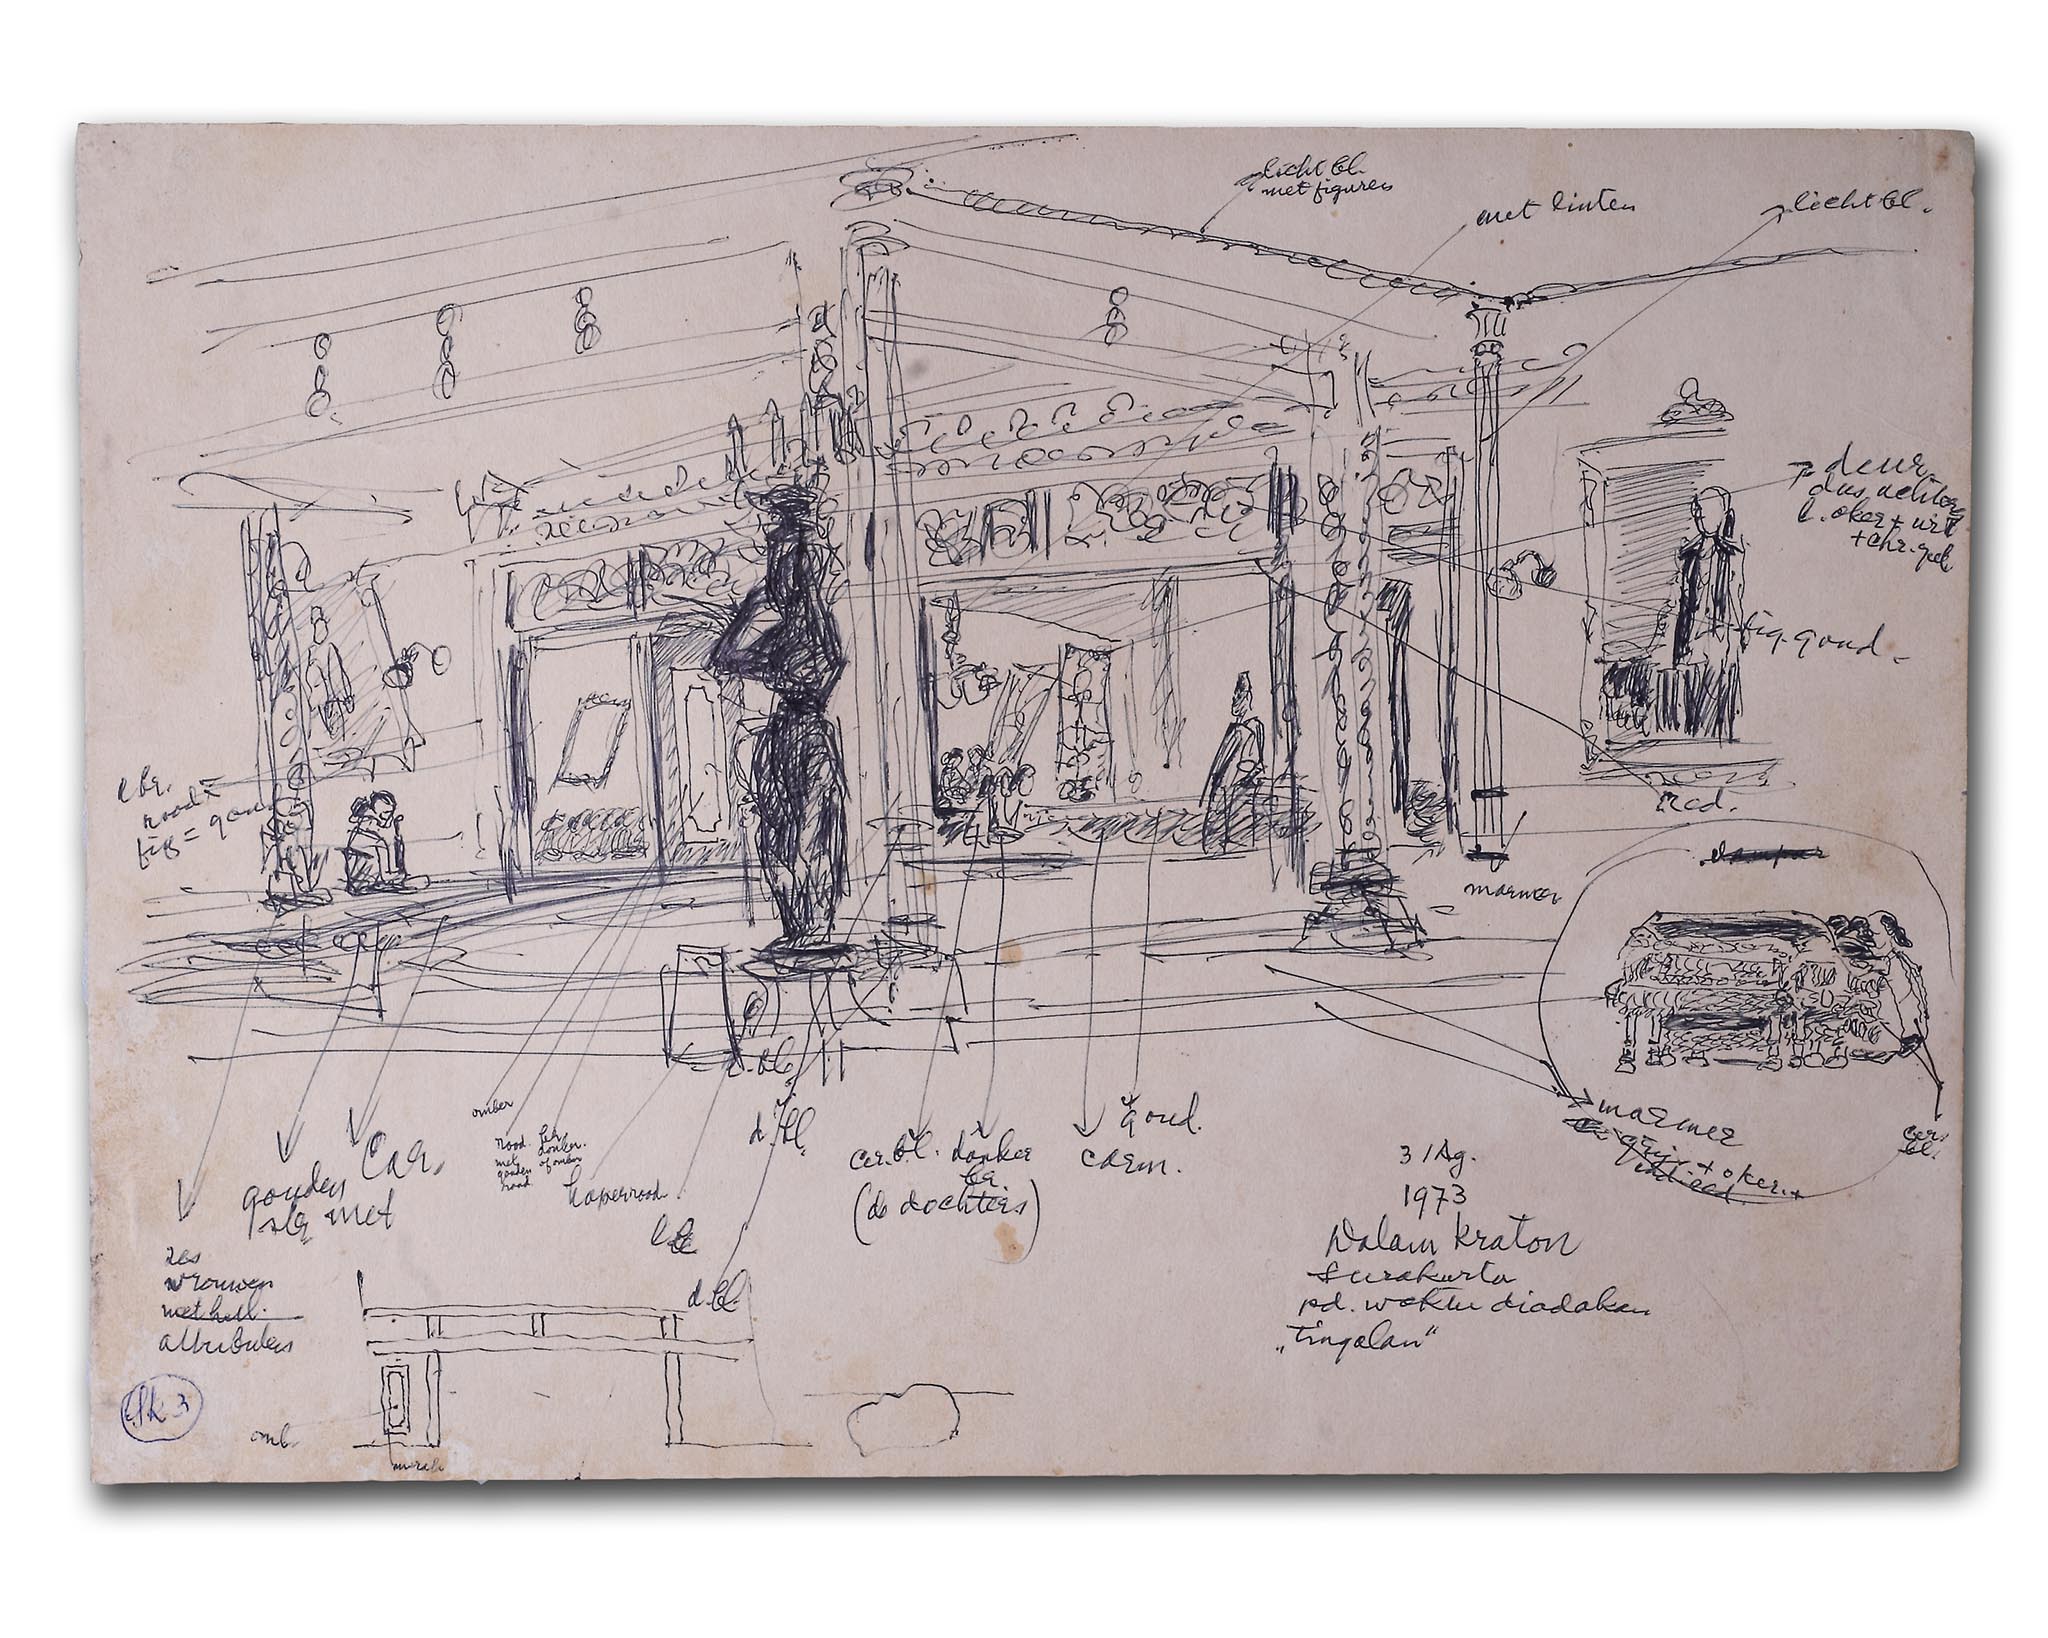 licht bl.
met figuren
met linten
licht bl.
deur
dus achter
l. oker + wit
+ chr. geel
fig. goud.
l. br.
rood =
fig = goud
red.
dampar
marmer
omber
rood
met
gouden
rood
donker
of omber
koperrood
l. bl.
d. bl.
l. bl.
d. bl.
gouden car.
met
cer. bl. donker
br.
(de dochters)
carm.
goud.
marmer
grijs + oker +
ind. red.
cer.
bl.
zes
vrouwen
met hul
attributen
3 / Ag.
1973
Dalam Kraton
Surakarta
pd. waktu diadakan
„Tingalan"
Sk 3
omb.
merah